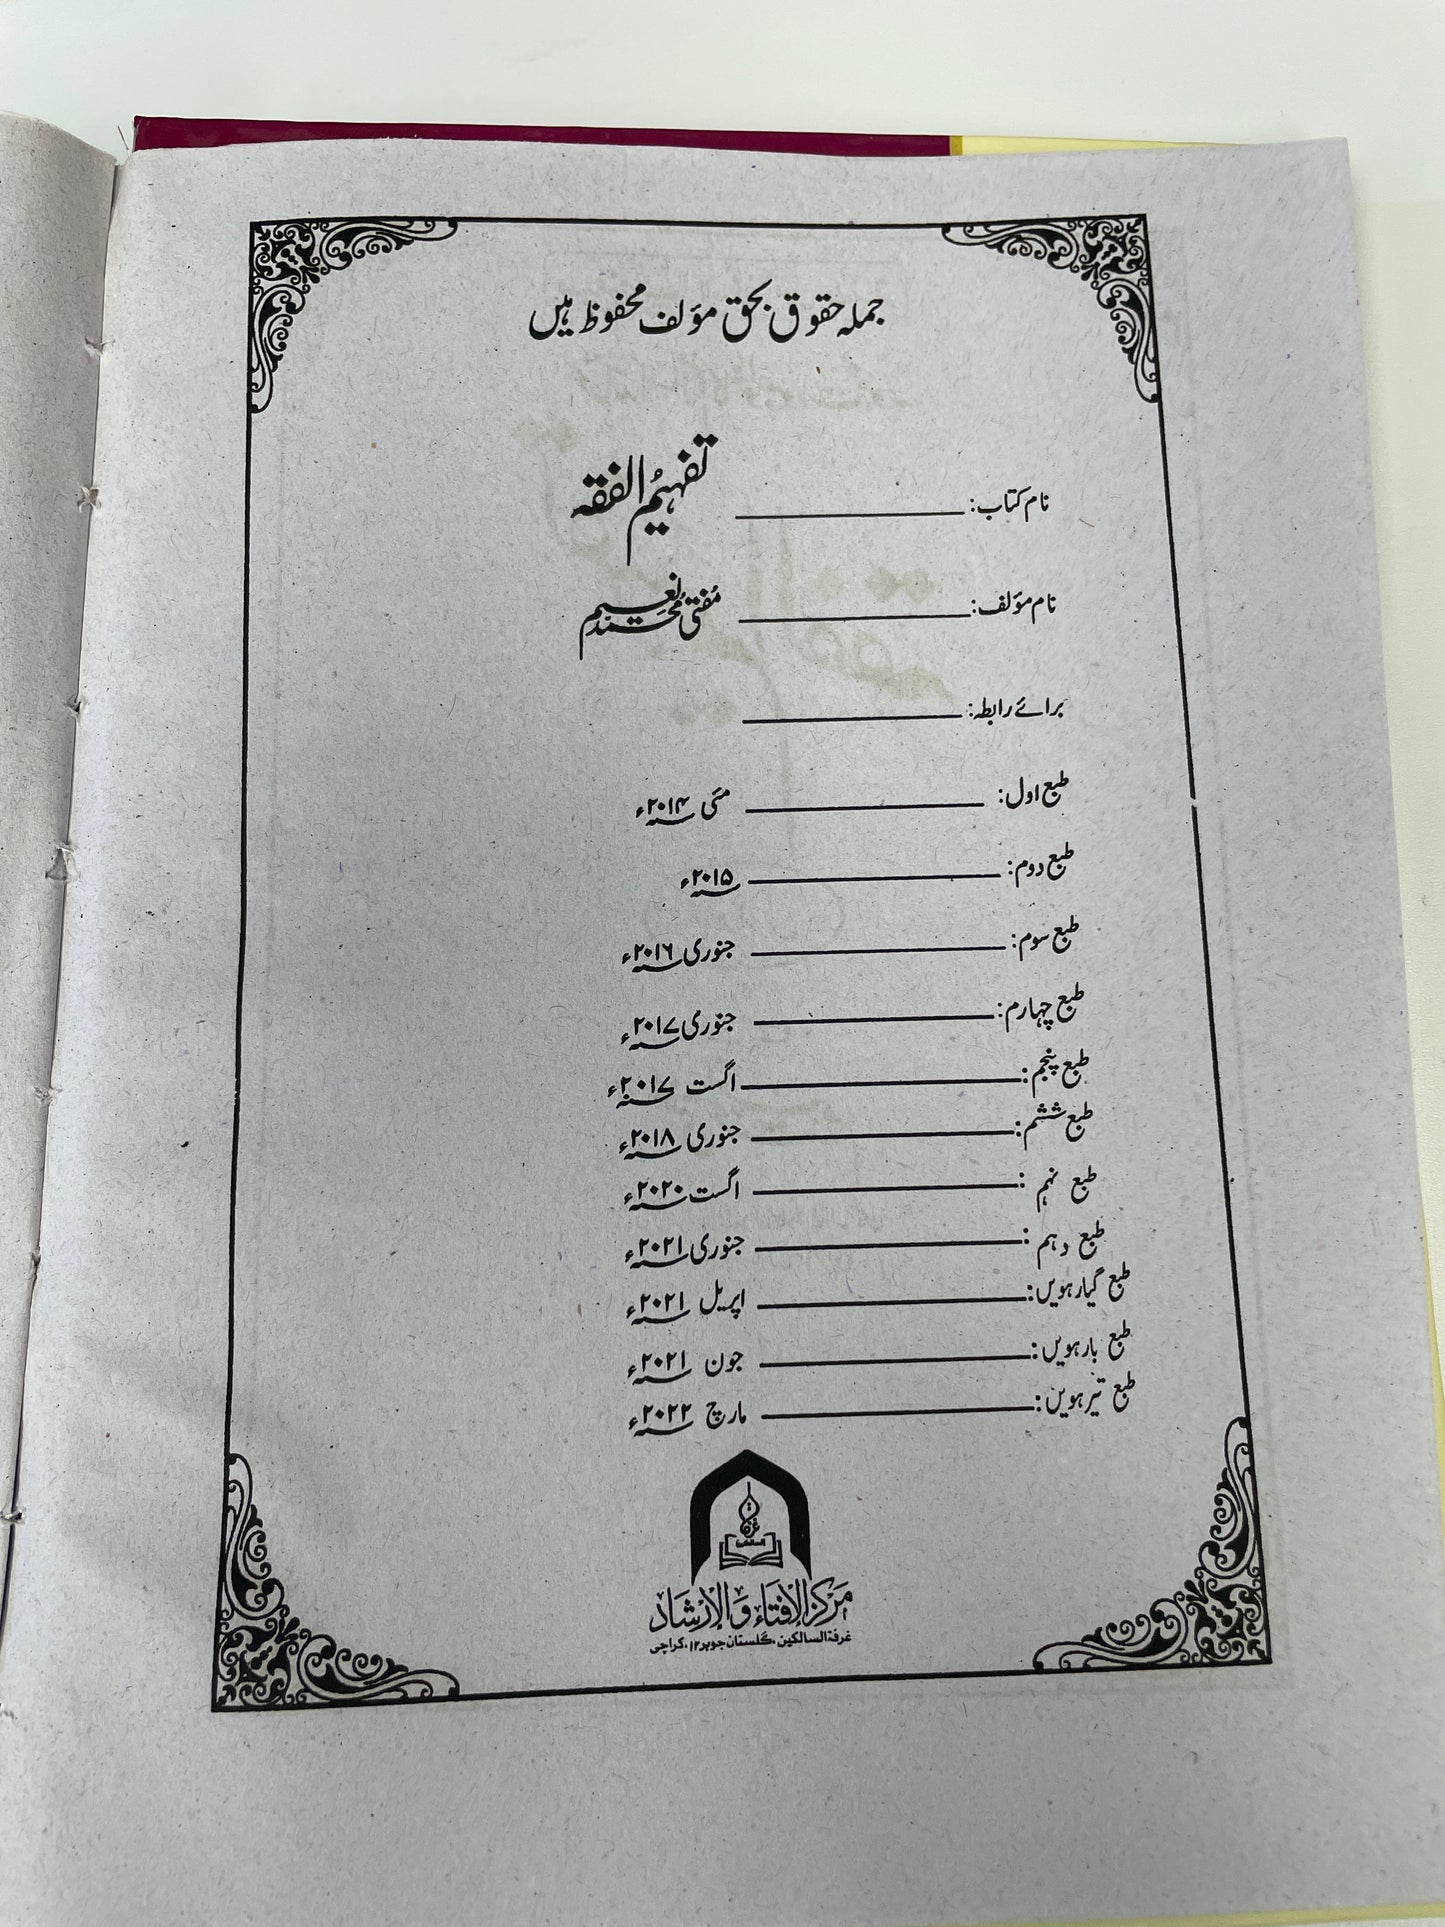 جملہ حقوق بحق مؤلف محفوظ ہیں
نام کتاب: تفہیمُ الفقہ
نام مؤلف: مُفتی مُحَمَّد نعیم
برائے رابطہ:
طبع اول: مئی ۲۰۱۴ء
طبع دوم: ۲۰۱۵ء
طبع سوم: جنوری ۲۰۱۶ء
طبع چہارم: جنوری ۲۰۱۷ء
طبع پنجم: اگست ۲۰۱۷ء
طبع ششم: جنوری ۲۰۱۸ء
طبع نہم: اگست ۲۰۲۰ء
طبع دہم: جنوری ۲۰۲۱ء
طبع گیارہویں: اپریل ۲۰۲۱ء
طبع بارہویں: جون ۲۰۲۱ء
طبع تیرہویں: مارچ ۲۰۲۲ء
غرفة
السالکین
مَرکزُ الإفتَاء وَالإرْشَاد
غرفۃ السالکین، گلستان جوہر ۱۲، کراچی